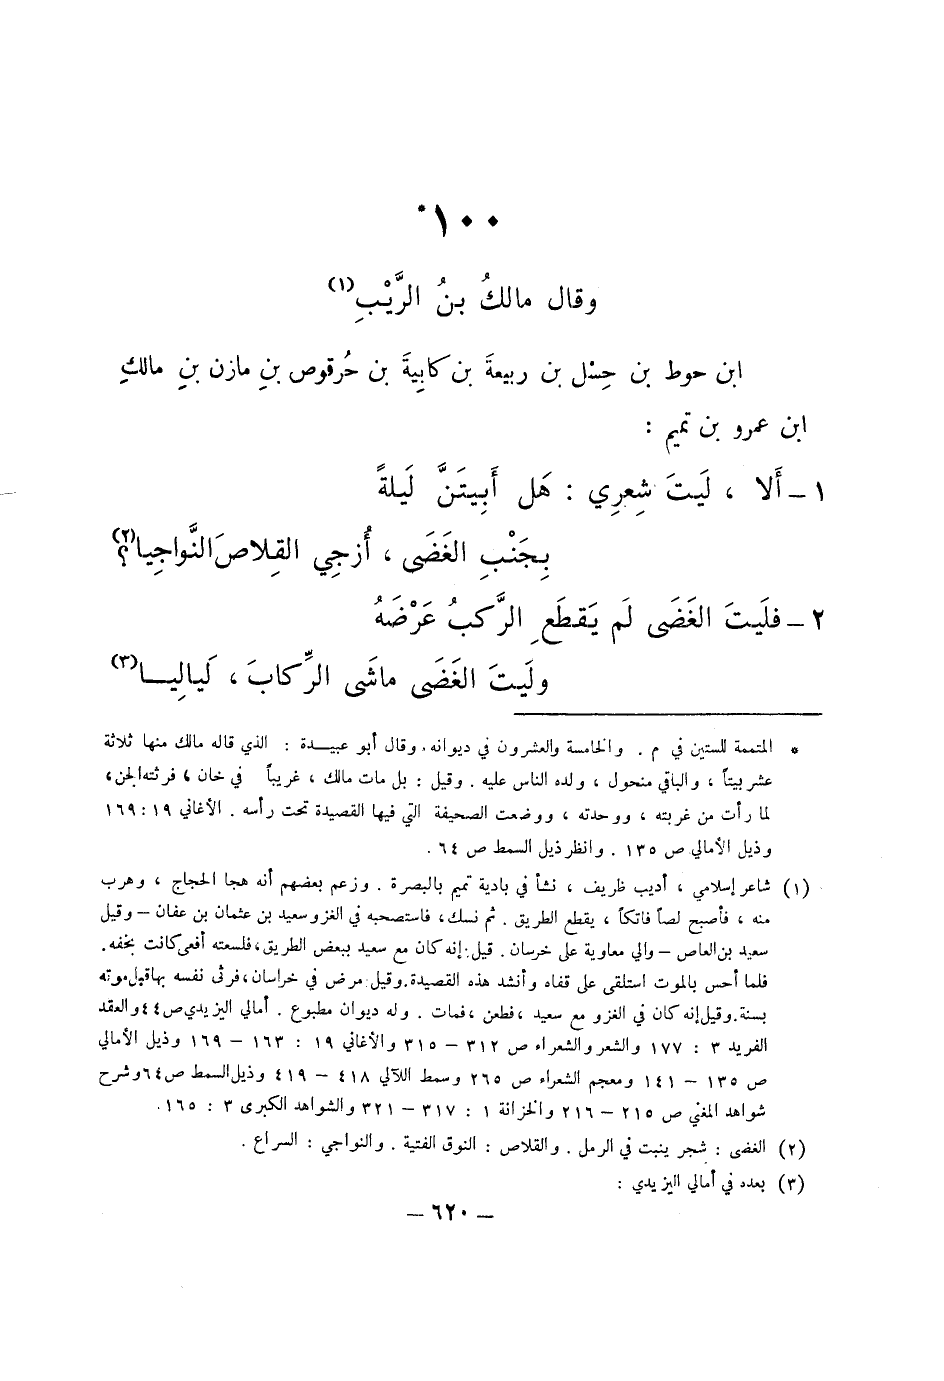 ١٠٠*
وقال مالكُ بنُ الرَّيْبِ(١)
ابن حوط بن حِسْل بن ربيعةَ بن كابِيةَ بن حُرقوص بنِ مازن بنِ مالكِ
ابن عمرو بن تميم :
١ – أَلا ، لَيتَ شِعرِي : هَل أَبِيتَنَّ لَيلةً
بِجَنْبِ الغَضَى ، أُزجِي القِلاصَ النَّواجِيا(٢)؟
٢ – فلَيتَ الغَضَى لَم يَقطَعِ الرَّكبُ عَرْضَهُ
ولَيتَ الغَضَى ماشَى الرِّكابَ ، لَيالِيـا(٣)
* المتممة للستين في م . والخامسة والعشرون في ديوانه. وقال أبو عبيـدة : الذي قاله مالك منها ثلاثة
عشر بيتاً ، والباقي منحول ، ولده الناس عليه . وقيل : بل مات مالك ، غريباً في خان ، فرثته الجن ،
لما رأت من غربته ، ووحدته ، ووضعت الصحيفة التي فيها القصيدة تحت رأسه . الأغاني ١٩ : ١٦٩
وذيل الأمالي ص ١٣٥ . وانظر ذيل السمط ص ٦٤ .
(١) شاعر إسلامي ، أديب ظريف ، نشأ في بادية تميم بالبصرة . وزعم بعضهم أنه هجا الحجاج ، وهرب
منه ، فأصبح لصاً فاتكاً ، يقطع الطريق . ثم نسك، فاستصحبه في الغزو سعيد بن عثمان بن عفان – وقيل
سعيد بن العاص – والي معاوية على خرسان . قيل : إنه كان مع سعيد ببعض الطريق، فلسعته أفعى كانت بخفه.
فلما أحس بالموت استلقى على قفاه وأنشد هذه القصيدة.وقيل مرض في خراسان، فرثى نفسه بها قبل موته
بسنة.وقيل إنه كان في الغزو مع سعيد ، فطعن ، فمات . وله ديوان مطبوع . أمالي اليزيدي ص ٤٤ والعقد
الفريد ٣ : ١٧٧ والشعر والشعراء ص ٣١٢ – ٣١٥ والأغاني ١٩ : ١٦٣ – ١٦٩ وذيل الأمالي
ص ١٣٥ – ١٤١ ومعجم الشعراء ص ٢٦٥ وسمط اللآلي ٤١٨ – ٤١٩ وذيل السمط ص ٦٤ وشرح
شواهد المغني ص ٢١٥ – ٢١٦ والخزانة ١ : ٣١٧ – ٣٢١ والشواهد الكبرى ٣ : ١٦٥ .
(٢) الغضى : شجر ينبت في الرمل . والقلاص : النوق الفتية . والنواجي : السراع .
(٣) بعده في أمالي اليزيدي :
– ٦٢٠ –